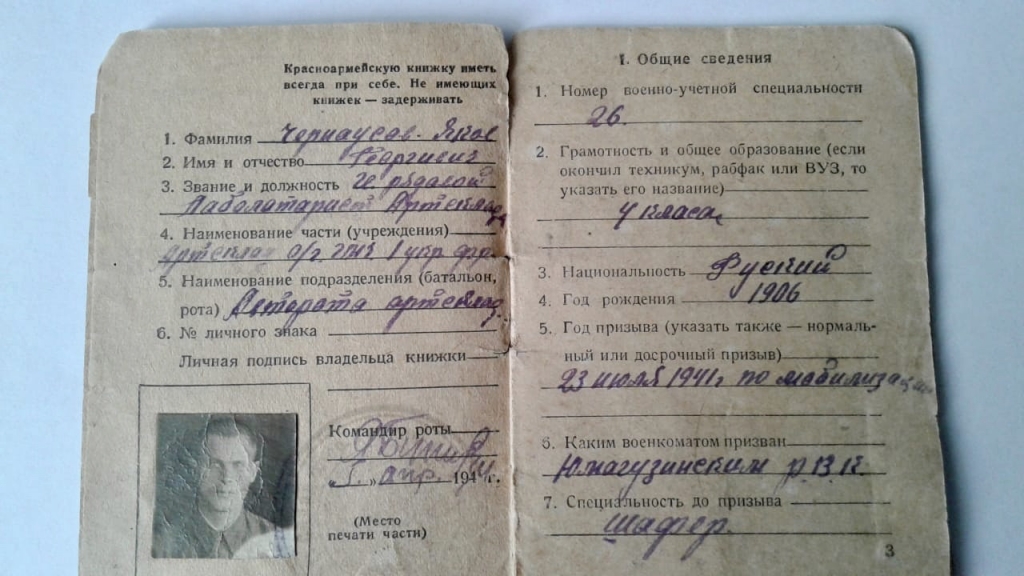 Красноармейскую книжку иметь
всегда при себе. Не имеющих
книжек — задерживать
1. Фамилия
2. Имя и отчество Георгиевич
3. Звание и должность рядовой
Артсклада
4. Наименование части (учреждения)
Артсклад 1 укр фр.
5. Наименование подразделения (батальон,
рота) Авторота артсклад
6. № личного знака
Личная подпись владельца книжки
Командир роты
5 „ апр. 194 г.
(Место
печати части)
I. Общие сведения
1. Номер военно-учетной специальности
26.
2. Грамотность и общее образование (если
окончил техникум, рабфак или ВУЗ, то
указать его название)
4 класа
3. Национальность Руский
4. Год рождения 1906
5. Год призыва (указать также — нормаль-
ный или досрочный призыв)
23 июля 1941г по мобилизации
6. Каким военкоматом призван
Юмагузинским р.В.К.
7. Специальность до призыва
Шафер.
3